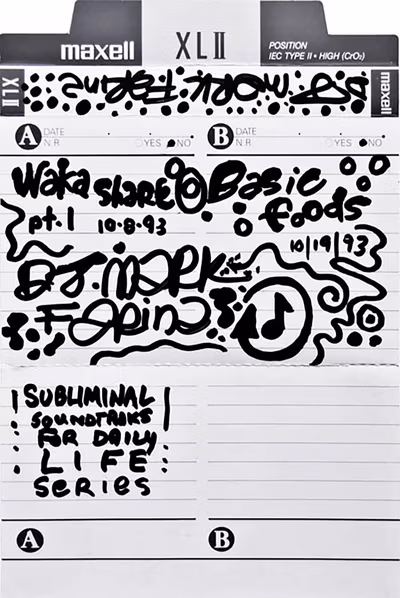 maxell XL II POSITION
IEC TYPE II • HIGH (CrO₂)
DJ. MARK FARINA
XL II
maxell
A DATE
N.R. YES NO
B DATE
N.R. YES NO
Waka share
pt.1 10·8·93
Basic
foods
10/19/93
D.J. MARK
FARINA
SUBLIMINAL
SOUNDTRAKS
FOR DAILY
LIFE
SERIES
A B